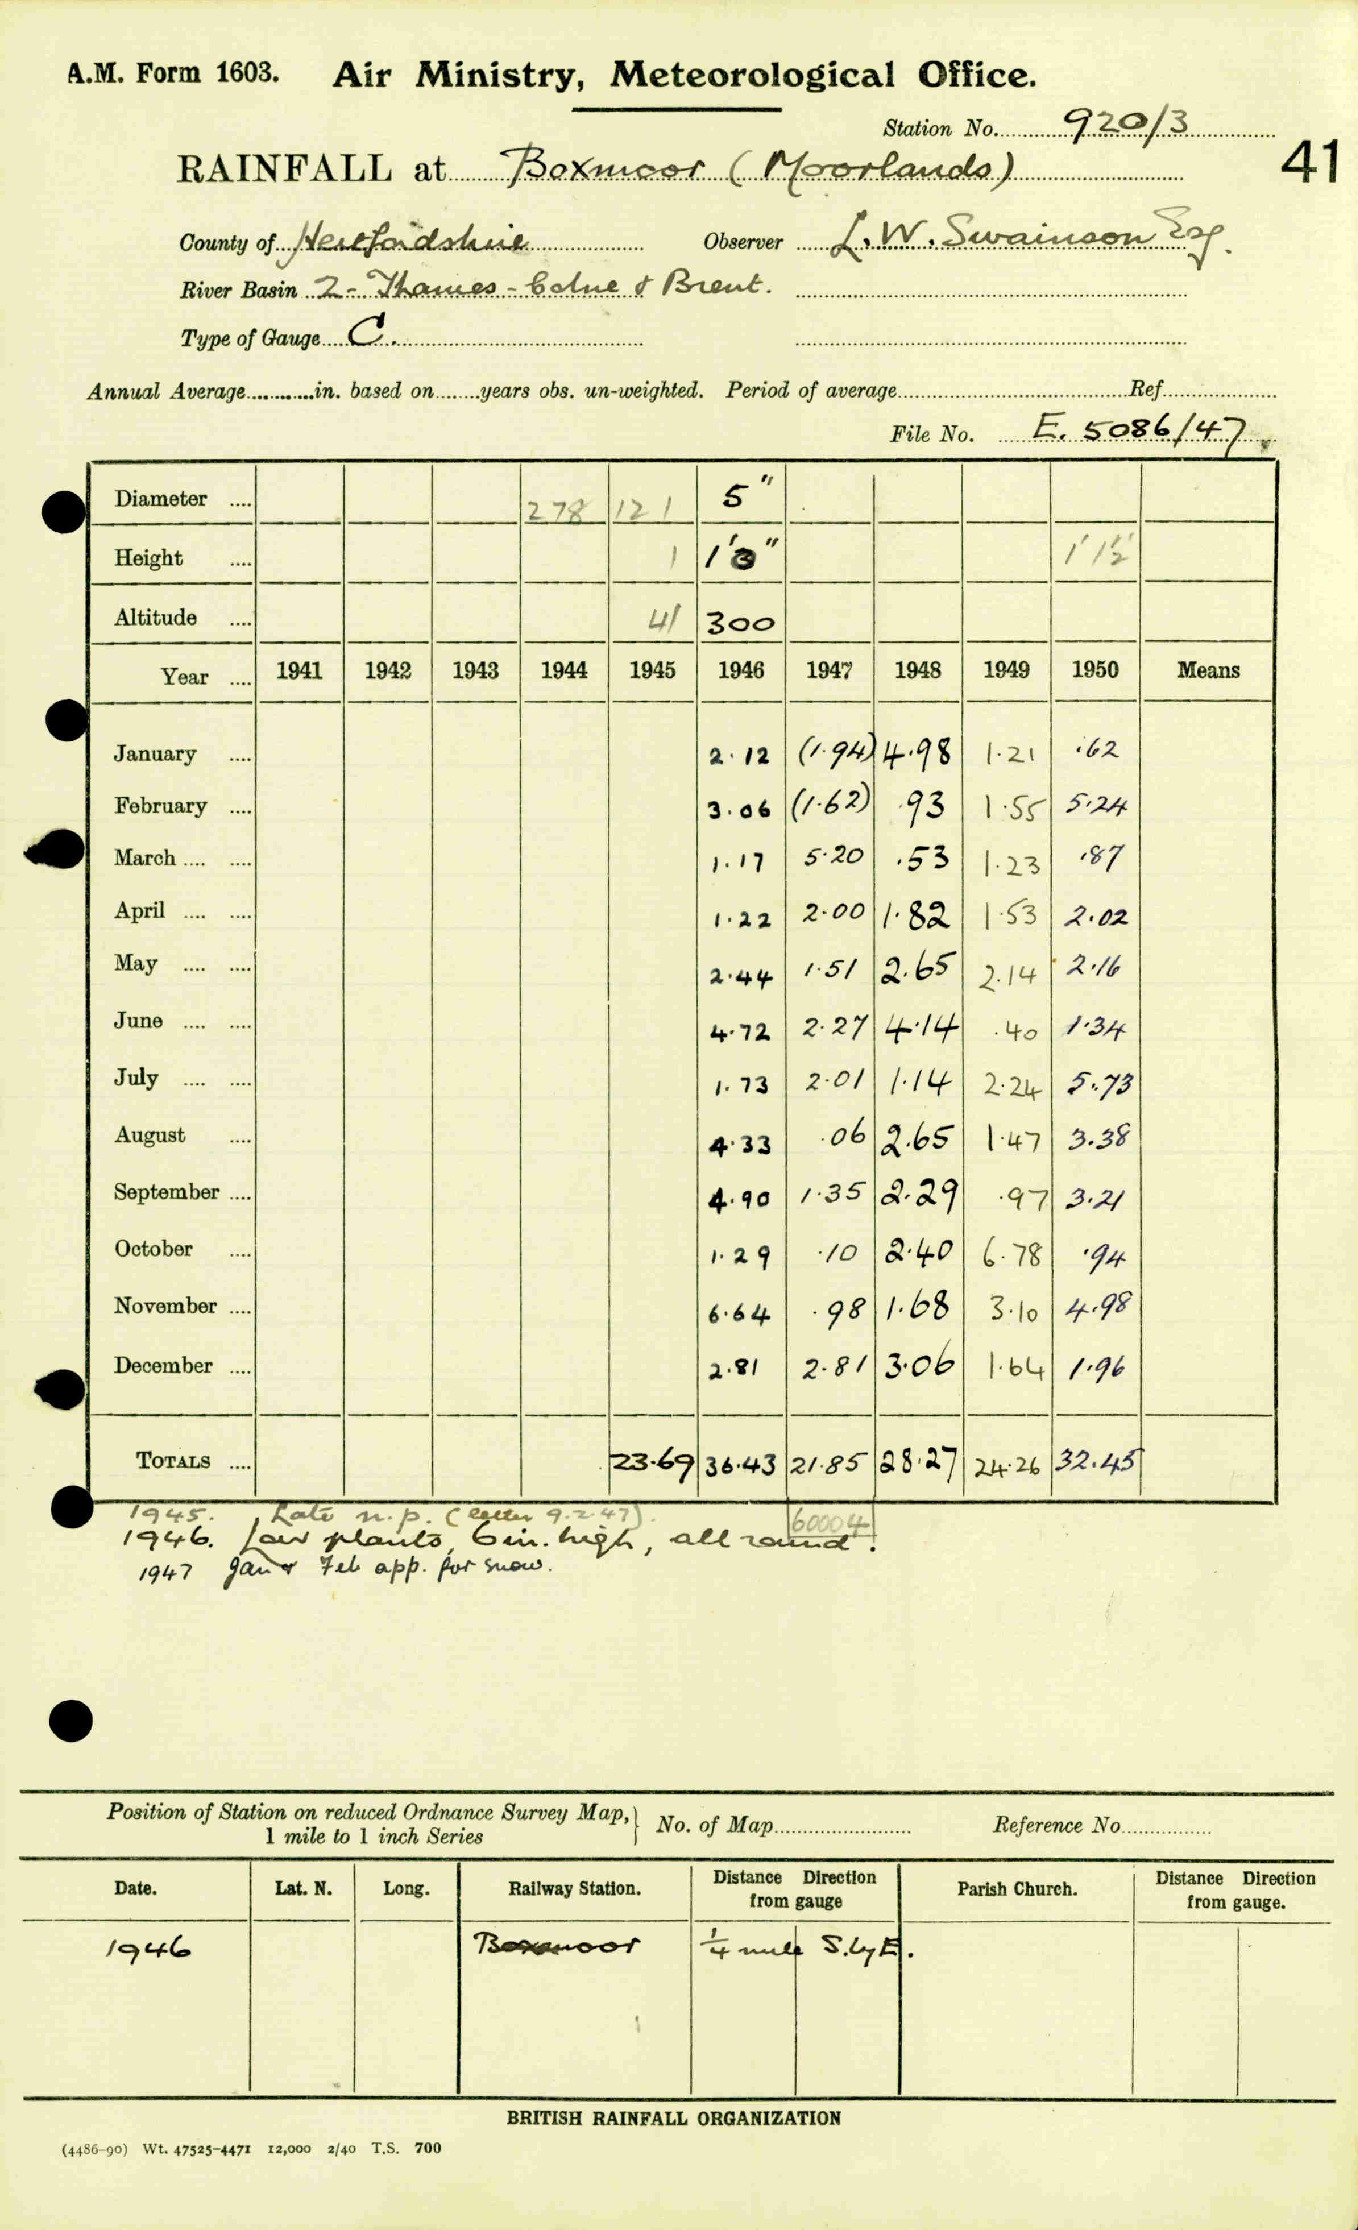 A.M. Form 1603. Air Ministry, Meteorological Office.
Station No. 920/3
41
RAINFALL at Boxmoor (Moorlands)
County of Hertfordshire Observer L. W. Swainson Esq.
River Basin 2 - Thames - Colne & Brent.
Type of Gauge C.
Annual Average............in. based on........years obs. un-weighted. Period of average............Ref............
File No. E. 5086/47
Diameter .... 278 121 5"
Height .... 1 1'3" 1'1½"
Altitude .... 41 300
Year .... 1941 1942 1943 1944 1945 1946 1947 1948 1949 1950 Means
January .... 2.12 (1.94) 4.98 1.21 .62
February .... 3.06 (1.62) .93 1.55 5.24
March .... .... 1.17 5.20 .53 1.23 .87
April .... .... 1.22 2.00 1.82 1.53 2.02
May .... .... 2.44 1.51 2.65 2.14 2.16
June .... .... 4.72 2.27 4.14 .40 1.34
July .... .... 1.73 2.01 1.14 2.24 5.73
August .... 4.33 .06 2.65 1.47 3.38
September .... 4.90 1.35 2.29 .97 3.21
October .... 1.29 .10 2.40 6.78 .94
November .... 6.64 .98 1.68 3.10 4.98
December .... 2.81 2.81 3.06 1.64 1.96
TOTALS .... 23.69 36.43 21.85 28.27 24.26 32.45
1945. Late n.p. (letter 9.2.47). 60004
1946. Low plants, 6in. high, all round.
1947 Jan & Feb app. for snow.
Position of Station on reduced Ordnance Survey Map, 1 mile to 1 inch Series } No. of Map............ Reference No............
Date. Lat. N. Long. Railway Station. Distance Direction from gauge Parish Church. Distance Direction from gauge.
1946 Boxmoor ¼ mile S.byE.
BRITISH RAINFALL ORGANIZATION
(4486-90) Wt. 47525-4471 12,000 2/40 T.S. 700